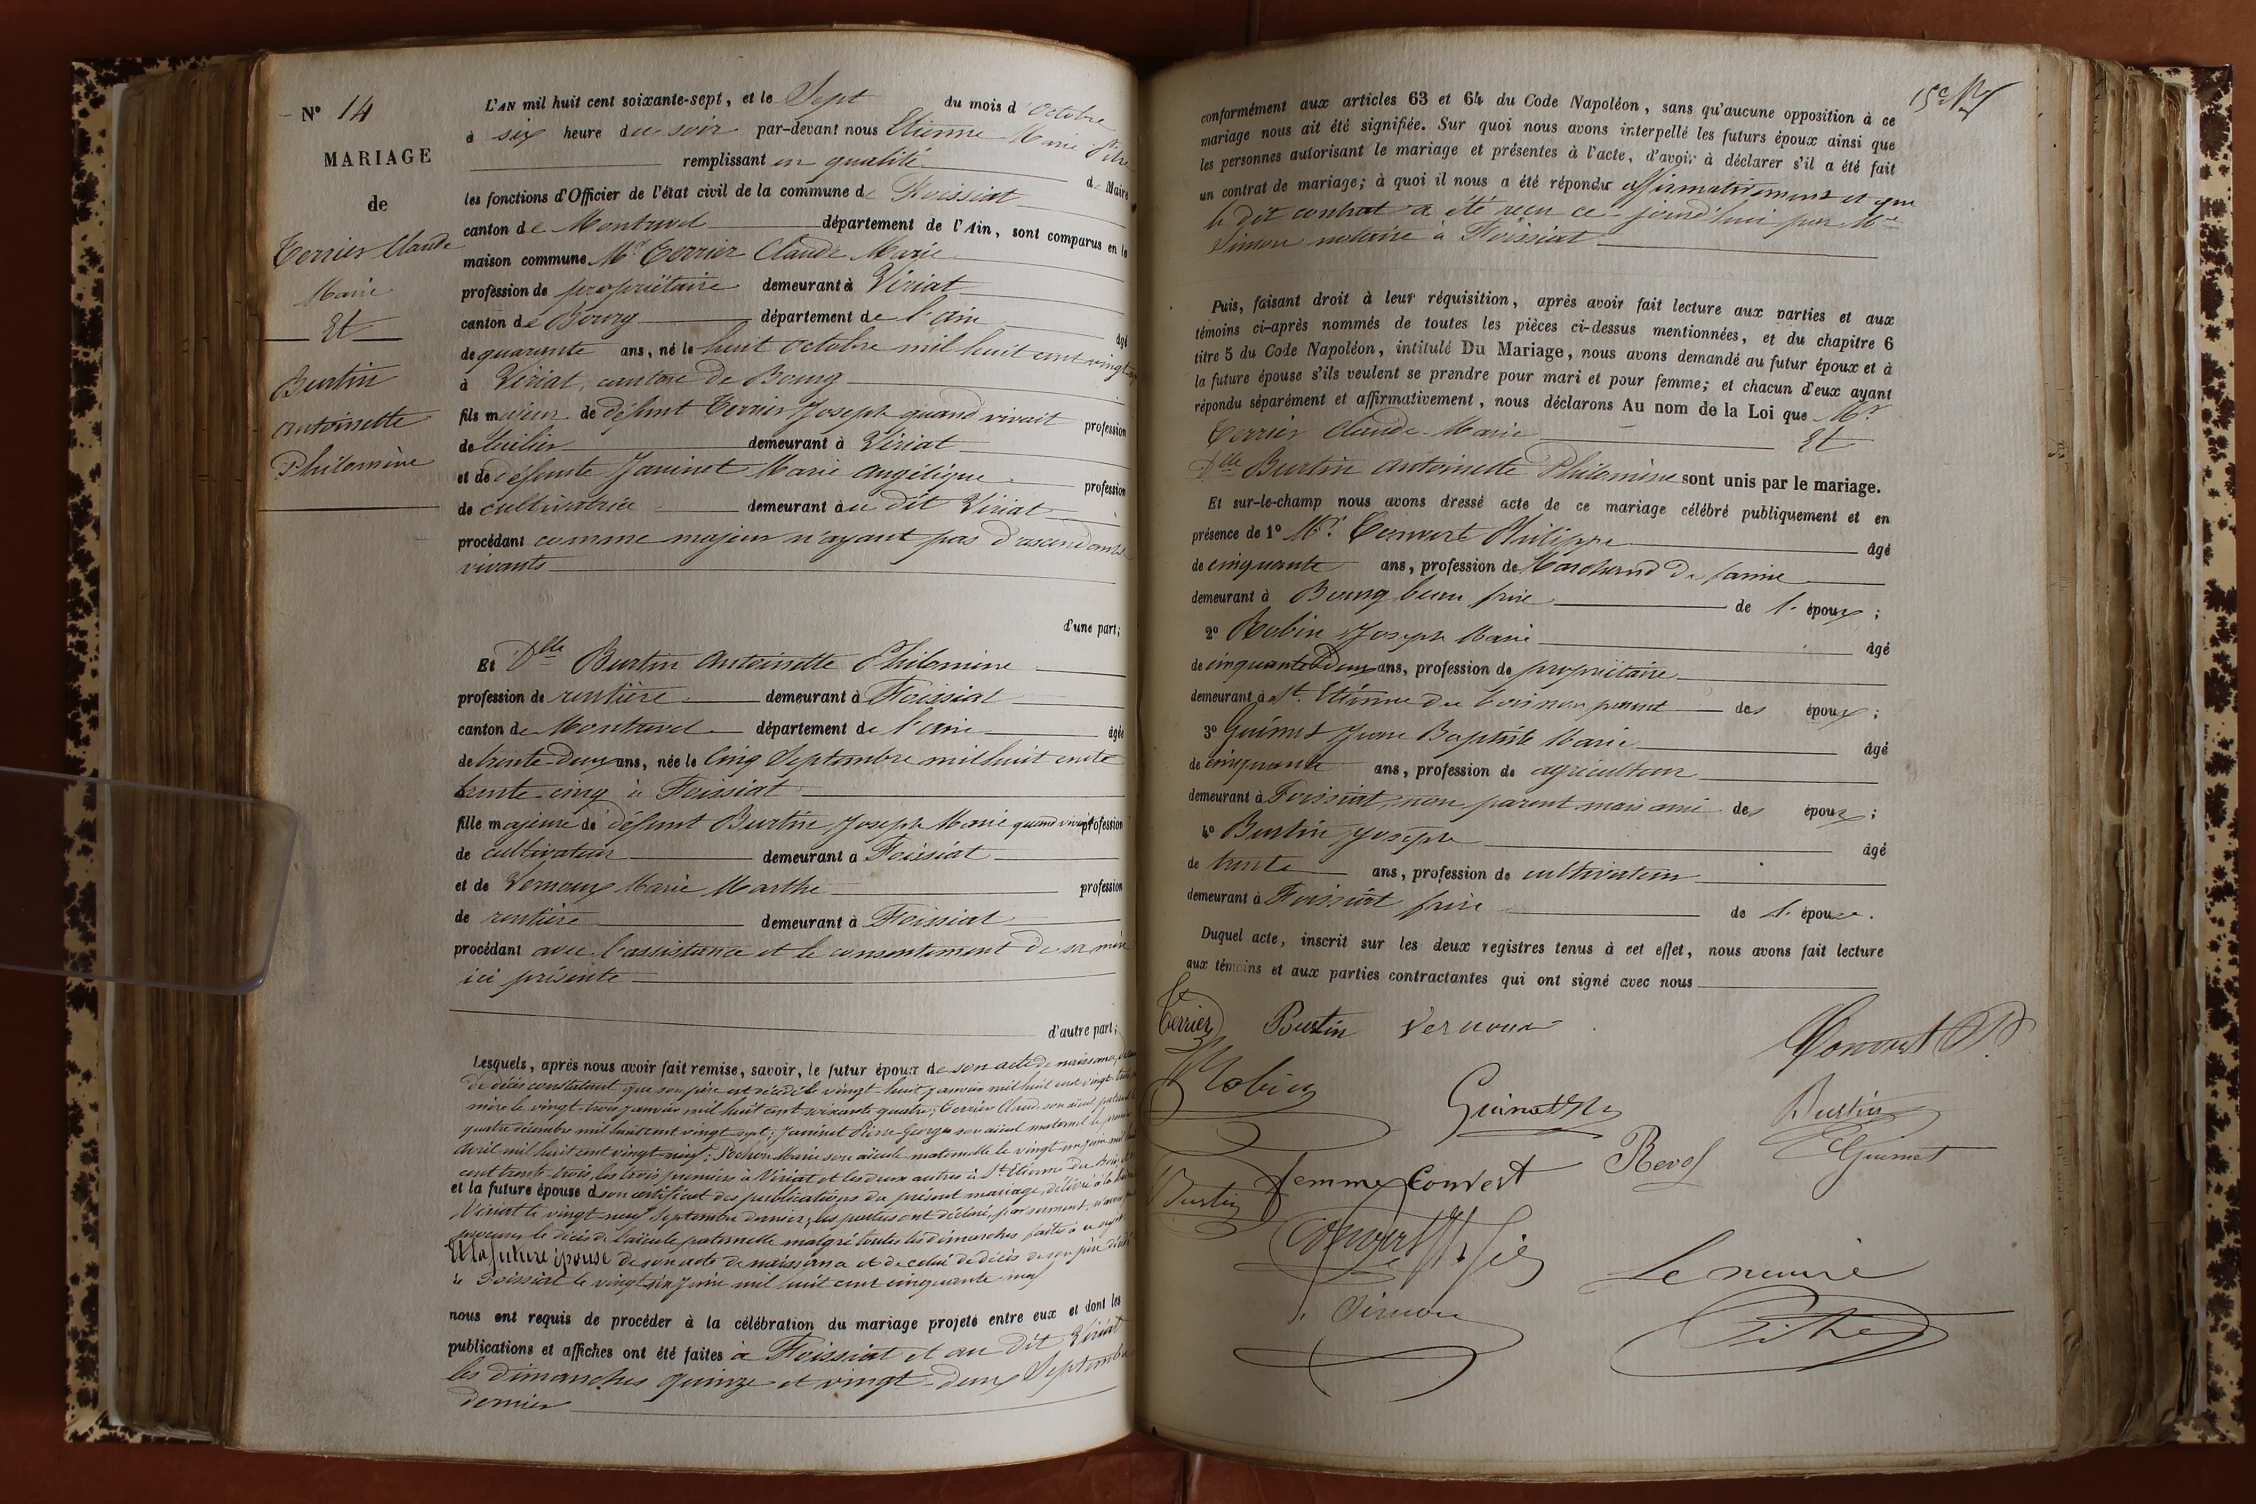 N° 14
MARIAGE
de
Terrier Claude
Marie
Et
Burtin
Antoinette
Philomène
L'AN mil huit cent soixante-sept, et le Sept du mois d'Octobre
à six heure du soir par-devant nous Etienne Marie Pitre
remplissant en qualité de Maire
les fonctions d'Officier de l'état civil de la commune de Foissiat
canton de Montrevel département de l'Ain, sont comparus en la
maison commune Mr Terrier Claude Marie
profession de propriétaire demeurant à Viriat
canton de Bourg département de l'ain âgé
de quarante ans, né le huit octobre mil huit cent vingt
à Viriat, canton de Bourg
fils majeur de défunt Terrier Joseph quand vivait profession
de demeurant à Viriat
et de défunte Janinet Marie Angélique profession
de cultivatrice demeurant au dit Viriat
procédant comme majeur n'ayant pas d'ascendants
vivants
d'une part;
Et Dlle Burtin Antoinette Philomine
profession de rentière demeurant à Foissiat
canton de Montrevel département de l'ain âgée
de trente deux ans, née le Cinq Septembre mil huit cent
trente cinq à Foissiat
fille majeure de défunt Burtin Joseph Marie quand vivait profession
de cultivateur demeurant a Foissiat
et de Vernoux Marie Marthe profession
de rentière demeurant à Foissiat
procédant avec l'assistance et le consentement de sa mère
ici présente
d'autre part;
Lesquels, après nous avoir fait remise, savoir, le futur époux de son acte de naissance,
de décès constatant que son père est décédé le vingt-huit janvier mil huit cent vingt
mère le vingt-trois janvier mil huit cent soixante quatre; Terrier Claude son aïeul paternel
quatre décembre mil huit cent vingt sept; Janinet Pierre George son aïeul maternel le premier
Avril mil huit cent vingt-neuf; Pochon Marie son aïeule maternelle le vingt-un juin mil
cent trente-trois, les trois premiers à Viriat et les deux autres à St Etienne du Bois
et la future épouse d son certificat des publications du présent mariage, délivré à la
Viriat le vingt-neuf Septembre dernier; les parties ont déclaré, par serment, n'avoir
procurer le décès de l'aïeule paternelle malgré toutes les démarches faites à ce sujet
Et la future épouse de son acte de naissance et de celui de décès de son père décédé
à Foissiat le vingt six Juin mil huit cent cinquante neuf
nous ont requis de procéder à la célébration du mariage projeté entre eux et dont les
publications et affiches ont été faites à Foissiat et au dit Viriat
les dimanches quinze et vingt-deux Septembre
dernier
conformément aux articles 63 et 64 du Code Napoléon, sans qu'aucune opposition à ce
mariage nous ait été signifiée. Sur quoi nous avons interpellé les futurs époux ainsi que
les personnes autorisant le mariage et présentes à l'acte, d'avoir à déclarer s'il a été fait
un contrat de mariage; à quoi il nous a été répondu affirmativement et que
le dit contrat a été reçu ce jourd'hui par Me
Simon notaire à Foissiat
Puis, faisant droit à leur réquisition, après avoir fait lecture aux parties et aux
témoins ci-après nommés de toutes les pièces ci-dessus mentionnées, et du chapitre 6
titre 5 du Code Napoléon, intitulé Du Mariage, nous avons demandé au futur époux et à
la future épouse s'ils veulent se prendre pour mari et pour femme; et chacun d'eux ayant
répondu séparément et affirmativement, nous déclarons Au nom de la Loi que Mr
Terrier Claude Marie Et
Dlle Burtin Antoinette Philomine sont unis par le mariage.
Et sur-le-champ nous avons dressé acte de ce mariage célébré publiquement et en
présence de 1° Mr Convert Philippe âgé
de cinquante ans, profession de Marchand de farine
demeurant à Bourg beau frère de l'époux;
2° Robin Joseph Marie âgé
de cinquante deux ans, profession de propriétaire
demeurant à St. Etienne du bois non parent des époux;
3° Guimet Jean Baptiste Marie âgé
de cinquante ans, profession de agriculteur
demeurant à Foissiat, non parent mais ami des époux;
4° Burtin Joseph âgé
de trente ans, profession de cultivateur
demeurant à Foissiat frère de l'épouse.
Duquel acte, inscrit sur les deux registres tenus à cet effet, nous avons fait lecture
aux témoins et aux parties contractantes qui ont signé avec nous
Terrier Burtin Vernoux Convert
Robin Guimet Burtin
Revol Guimet
Burtin femme Convert
Convert
Le maire
Simon Pitre